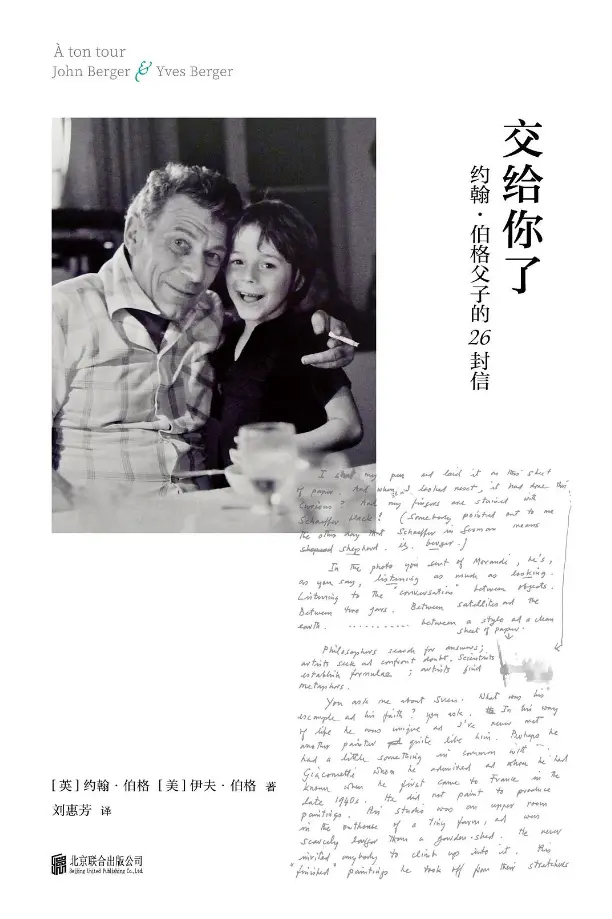 À ton tour
John Berger & Yves Berger
交给你了
约翰·伯格父子的26封信
I shut my pen and laid it on this sheet
of paper. And when I looked next, it had done this.
Curious? And my fingers are stained with
Schaeffer black! (Somebody pointed out to me
the other day that Schaeffer in German means
shepherd. ie. berger.)
In the photo you sent of Morandi, he's,
as you say, listening as much as looking.
Listening to the "conversation" between objects.
Between two jars. Between satellites and the
earth. .......... between a stylo and a clean
sheet of paper.
Philosophers search for answers;
artists seek and confront doubt. Scientists
establish formulae; artists find
metaphors.
You ask me about Sven. What was his
example and his faith? you ask. In his way
of life he was unique and I've never met
another painter quite like him. Perhaps he
had a little something in common with
Giacometti whom he admired and whom he had
known when he first came to France in the
late 1940s. He did not paint to produce
paintings. His studio was an upper room
in the outhouse of a tiny farm, and was
scarcely larger than a garden-shed. He never
invited anybody to climb up into it. His
"finished" paintings he took off from their stretchers
[英]约翰·伯格 [美]伊夫·伯格 著
刘惠芳 译
北京联合出版公司
Beijing United Publishing Co.,Ltd.